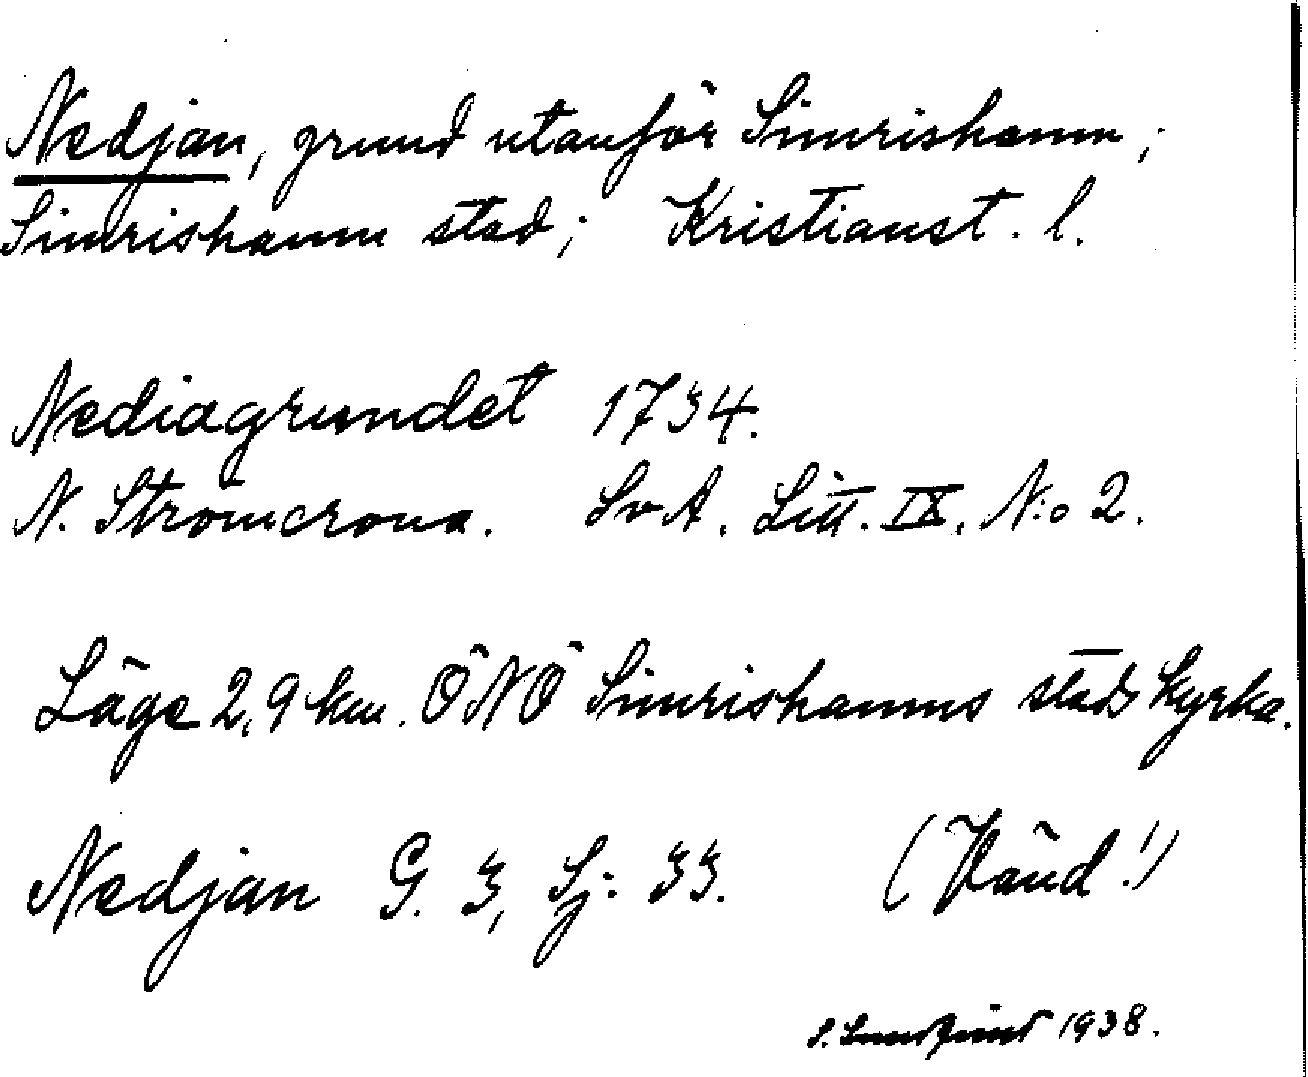 Nedjan, grund utanför Simrishamn;
Simrishamn stad; Kristianst. l.
Nediagrundet 1734.
N. Strömcrona. SvA. Litt. IX, N:o 2.
Läge 2,9 km. ÖNÖ Simrishamns stads kyrka.
Nedjan G. 3, Sj: 33. (Vänd!)
1938.